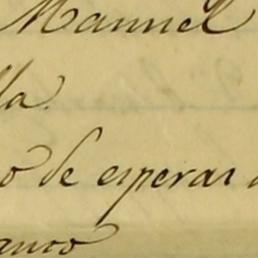 Manuel
lla.
o de esperar a
anco